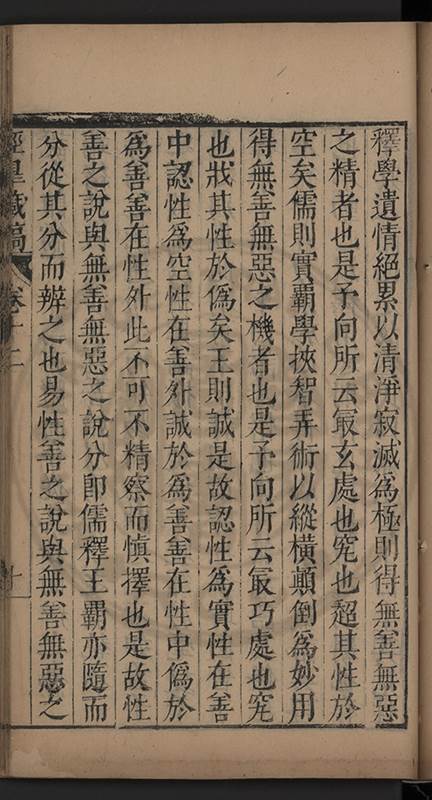 釋學遺情絕累以清淨寂滅爲極則得無善無惡
之精者也是予向所云最玄處也究也超其性於
空矣儒則實霸學挾智弄術以縱橫顛倒爲妙用
得無善無惡之機者也是予向所云最巧處也究
也戕其性於僞矣王則誠是故認性爲實性在善
中認性爲空性在善外誠於爲善善在性中僞於
爲善善在性外此不可不精察而慎擇也是故性
善之說與無善無惡之說分卽儒釋王霸亦隨而
分從其分而辨之也易性善之說與無善無惡之
涇臯藏稿 卷十二 十